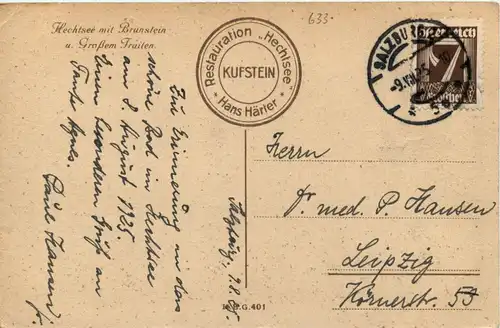 Hechtsee mit Brünstein
u. Großem Traiten.
633.-
Restauration „Hechtsee"
KUFSTEIN
* Hans Härter *
SALZBURG
Österreich
7
Zur Erinnerung an das
schöne Bad im Hechtsee
am 8 August 1925.
Einen besonderen Gruß an
Tante Agnes.
Paul Hansen jr.
Salzburg, 9.8.25.
Herrn
Dr. med. P. Hansen
Leipzig
Körnerstr. 53
G. 401